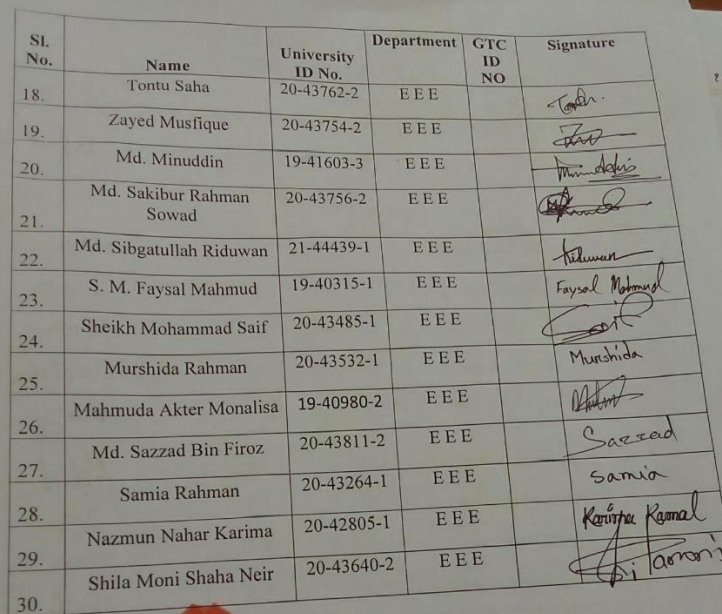 Sl. No. Name University ID No. Department GTC ID NO Signature
18. Tontu Saha 20-43762-2 E E E
19. Zayed Musfique 20-43754-2 E E E
20. Md. Minuddin 19-41603-3 E E E
21. Md. Sakibur Rahman Sowad 20-43756-2 E E E
22. Md. Sibgatullah Riduwan 21-44439-1 E E E Riduwan
23. S. M. Faysal Mahmud 19-40315-1 E E E Faysal Mahmud
24. Sheikh Mohammad Saif 20-43485-1 E E E
25. Murshida Rahman 20-43532-1 E E E Murshida
26. Mahmuda Akter Monalisa 19-40980-2 E E E
27. Md. Sazzad Bin Firoz 20-43811-2 E E E Sazzad
28. Samia Rahman 20-43264-1 E E E Samia
29. Nazmun Nahar Karima 20-42805-1 E E E
30. Shila Moni Shaha Neir 20-43640-2 E E E